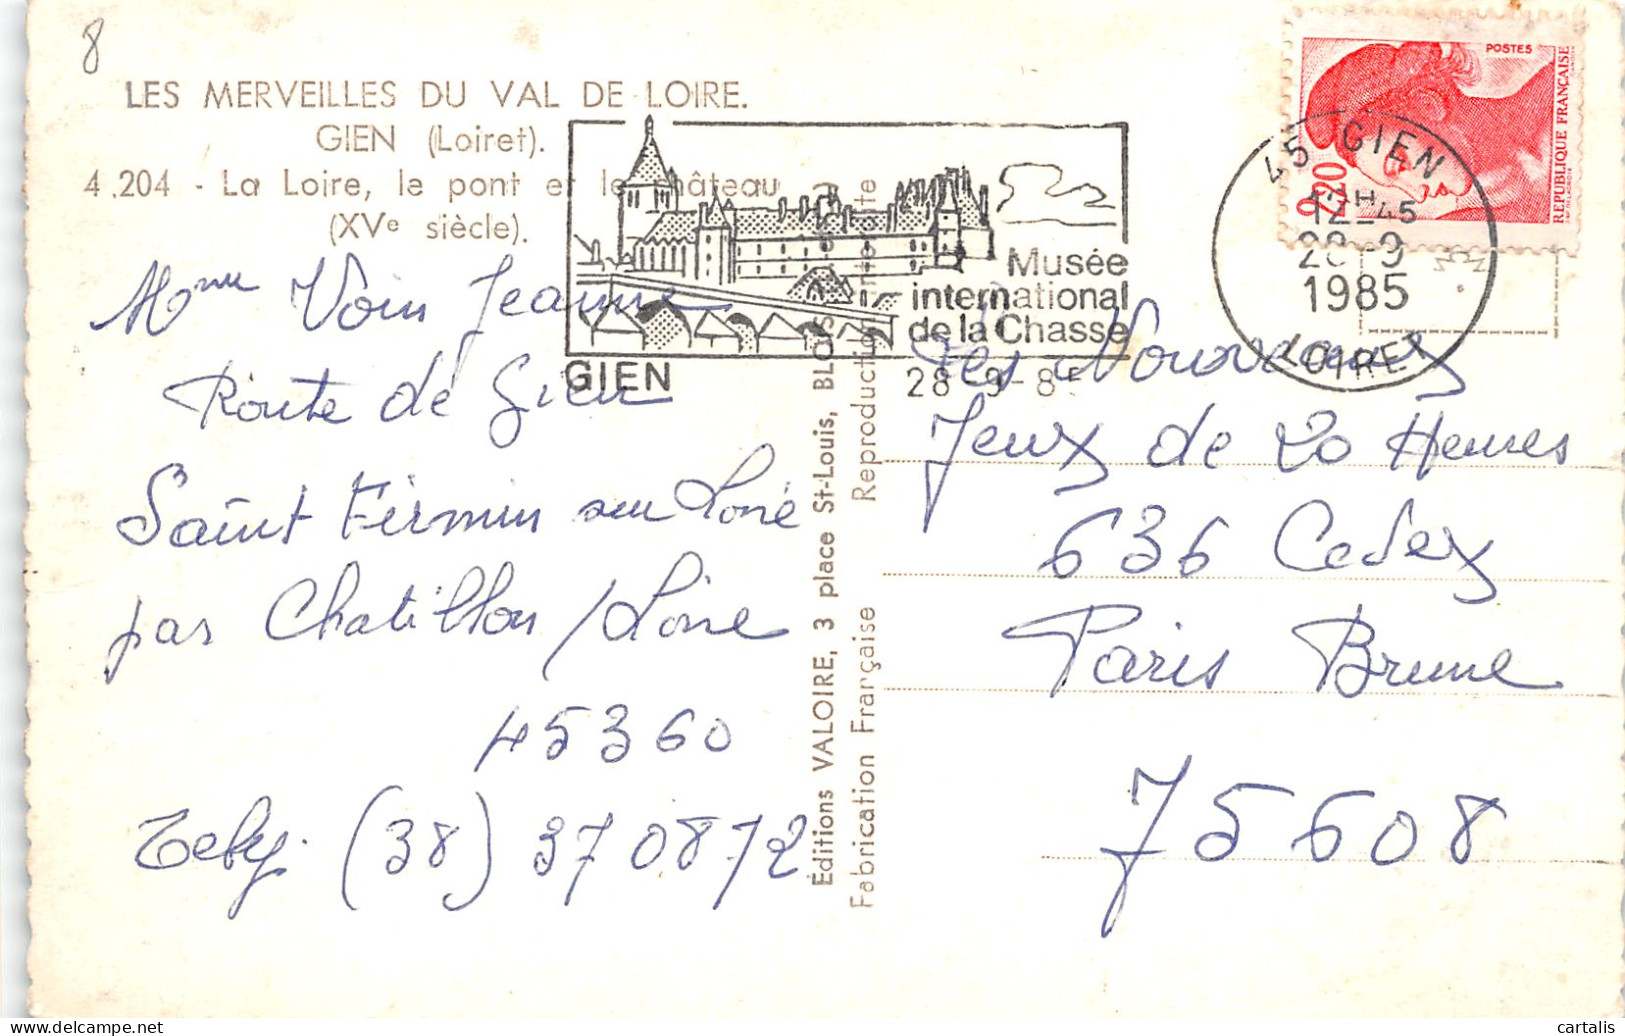 8
LES MERVEILLES DU VAL DE LOIRE.
GIEN (Loiret).
4.204 - La Loire, le pont et le château
(XVe siècle).
Mme Voin Jeanne
Route de Gien
Saint Firmin sur Loire
par Chatillon / Loire
45360
(38) 370872
GIEN
Musée
international
de la Chasse
28-9-8
Éditions VALOIRE, 3 place St-Louis, BLOIS
Fabrication Française Reproduction interdite
POSTES
RÉPUBLIQUE FRANÇAISE
2,20
45 GIEN
12H45
28-9
1985
LOIRET
Les Nouveaux
Jeux de 20 Heures
636 Cedex
Paris Brune
75608